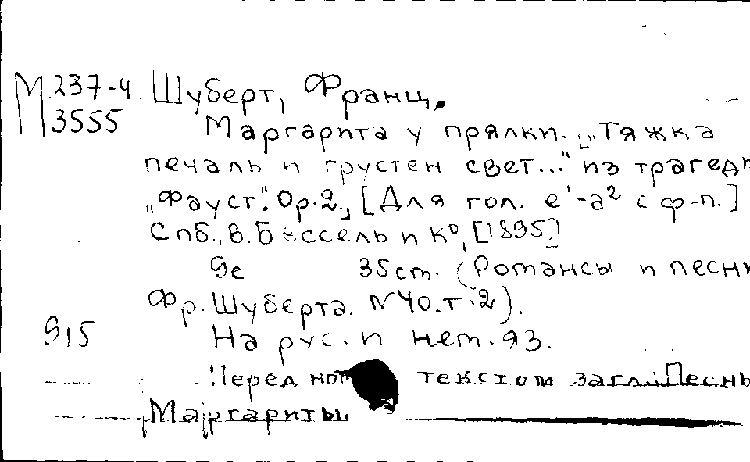 М 237-4 Шуберт, Франц.
3555 Маргарита у прялки. „Тяжка
печаль и грустен свет..." из трагеди
„Фауст". Op. 2, [Для гол. e¹-a² с ф-п.]
Спб., В. Бессель и К⁰, [1895]
9с 35 cm. (Романсы и песни
Фр. Шуберта. N 40. т. 2).
915 На рус. и нем. яз.
Перед текстом загл.: Песнь
Маргариты